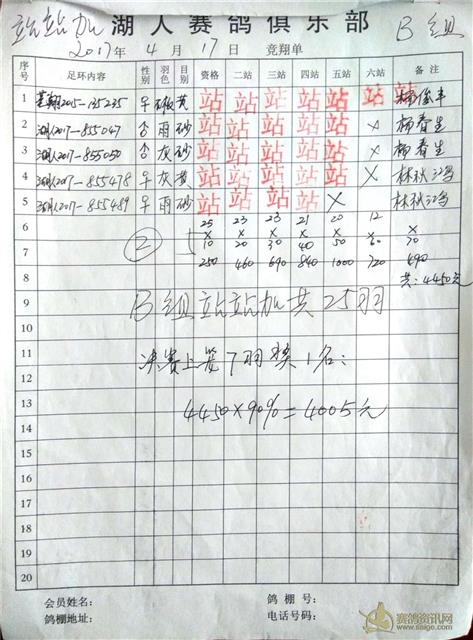 站站加 湖人赛鸽俱乐部 B组
2017年 4月 17日 竞翔单
序号 足环内容 性别 羽色 眼目 资格 二站 三站 四站 五站 六站 备注
1 2015-135235 黄 站 站 站 站 站 站 站
2 湖人2017-855047 雨 砂 站 站 站 站 站 × 杨春生
3 湖人2017-855050 灰 砂 站 站 站 站 站 × 杨春生
4 湖人2017-855478 灰 黄 站 站 站 站 站 × 林秋
5 湖人2017-855489 雨 砂 站 站 站 站 ×
6 25 23 23 21 20 12
× × × × × × ×
② 5 10 20 30 40 50 60 70
7 250 460 690 840 1000 720 490
8 共:4450元
9 B组站站加共25羽
10
11 决赛上笼7羽奖1名:
12
13 4450×90%=4005元
14
15
16
17
18
19
20
会员姓名: 鸽棚号:
鸽棚地址: 电话号码:
赛鸽资讯网
www.saige.com